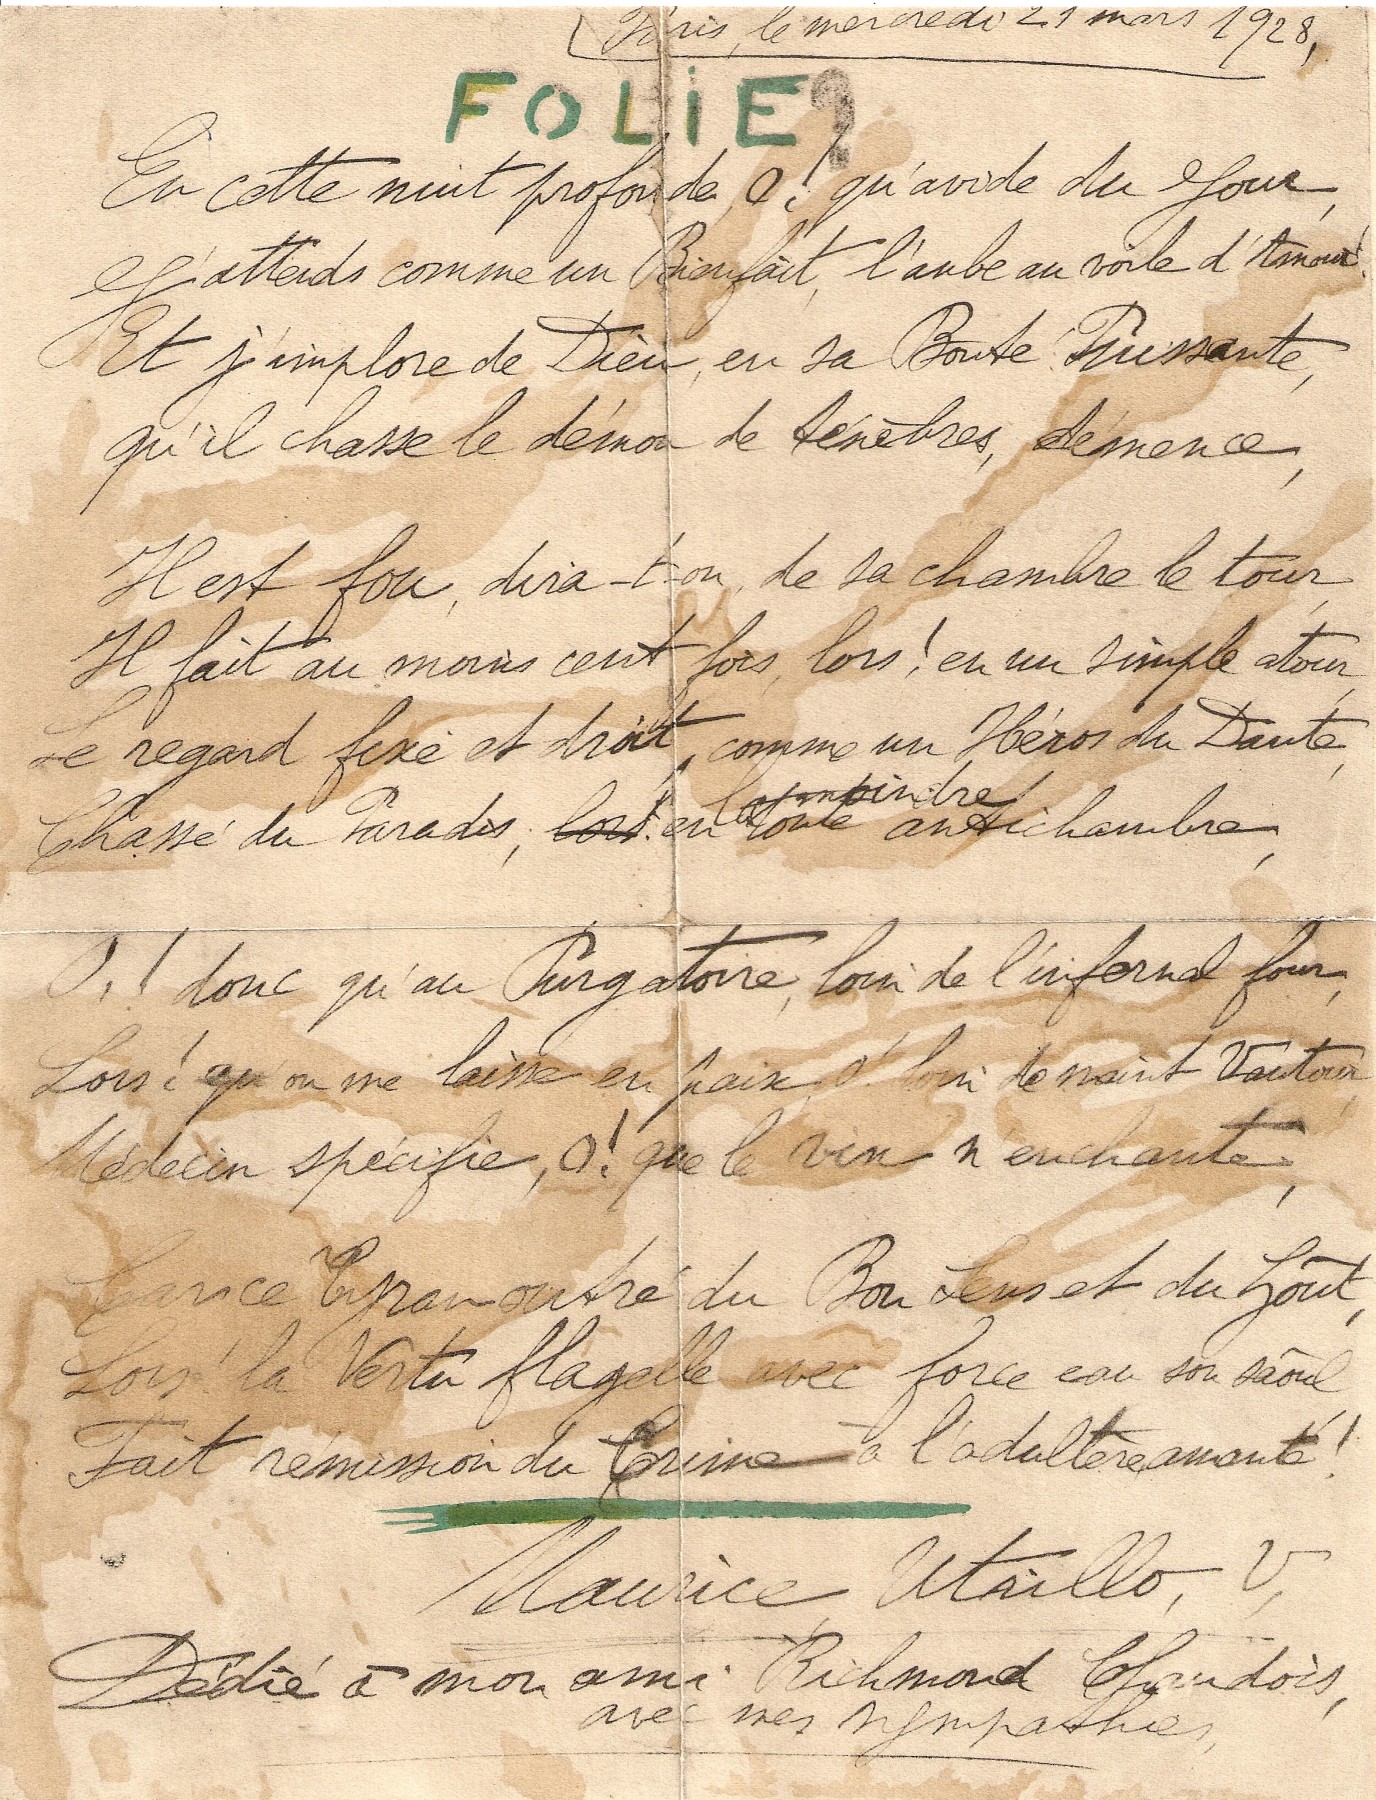 Paris, le mercredi 21 mars 1928,
FOLIE?
En cette nuit profonde, O! qu'avide du Jour,
J'attends comme un Bienfait, l'aube au voile d'Amour!
Et j'implore de Dieu, en sa Bonté Puissante,
qu'il chasse le démon de ténèbres, démence,
Il est fou, dira-t-on, de sa chambre le tour,
Il fait au moins cent fois, lors! en un simple atour,
Le regard fixe et droit, comme un Héros du Dante,
Chassé du Paradis, lors! en toute antichambre,
O,! donc qu'au Purgatoire, loin de l'infernal four,
Lors! qu'on me laisse en paix, O! loin de maint Vautour,
Médecin spécifie, O! que le vin n'enchante,
Car ce Tyran outré du Bon Sens et du Goût,
Lors! la Vertu flagelle avec force eau son saoûl
Fait rémission du Crime à l'adultère amante!
Maurice, Utrillo, V,
Dédié à mon ami Richmond Chaudois,
avec mes sympathies,